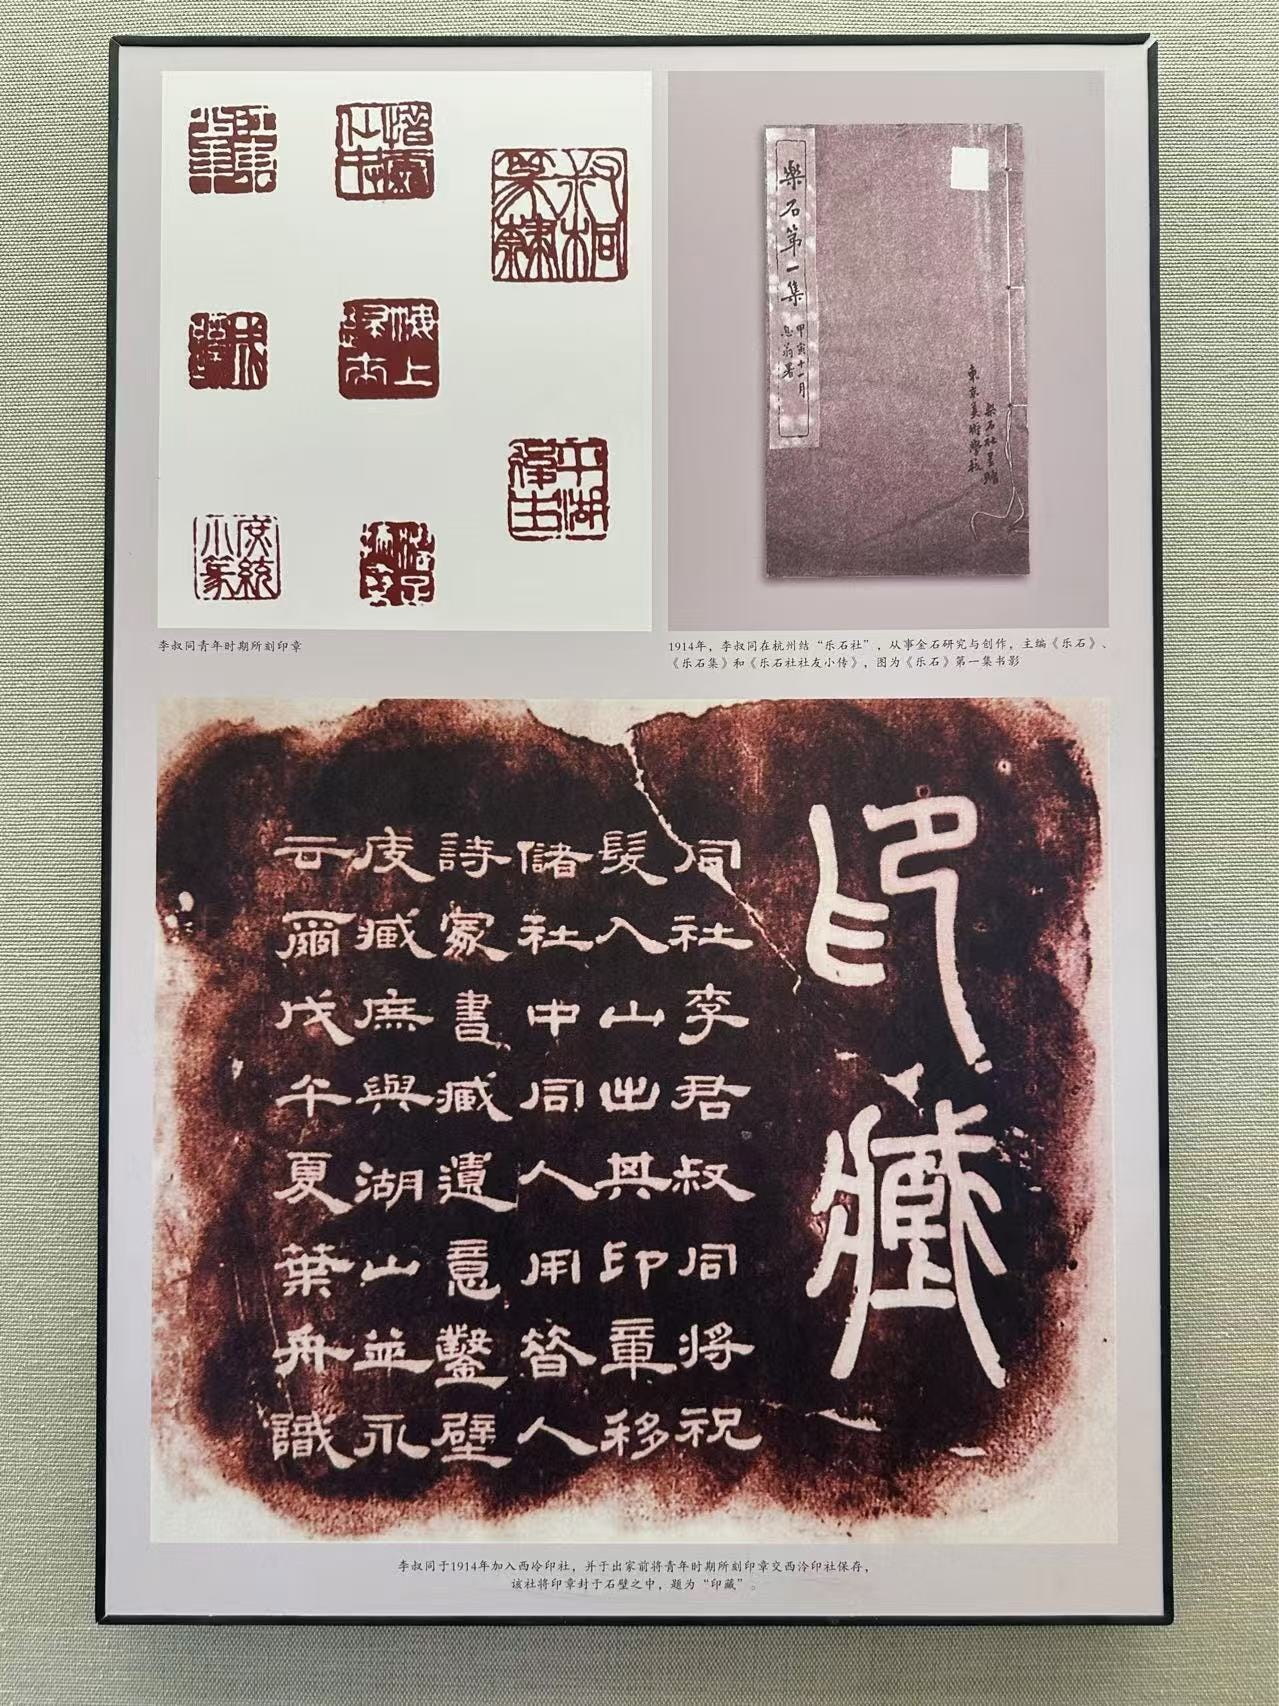 平湖
後生
李叔同青年时期所刻印章
樂石第一集
甲寅十一月
息翁署
樂石社呈贈
東京美術學校
1914年，李叔同在杭州结“乐石社”，从事金石研究与创作，主编《乐石》、
《乐石集》和《乐石社社友小传》，图为《乐石》第一集书影
印藏
同社李君叔同將祝
髮入山出其印章移
儲社中同人用昔人
詩冢書藏遺意鑿壁
庋藏庶與湖山並永
云爾戊午夏葉舟識
李叔同于1914年加入西泠印社，并于出家前将青年时期所刻印章交西泠印社保存，
该社将印章封于石壁之中，题为“印藏”。